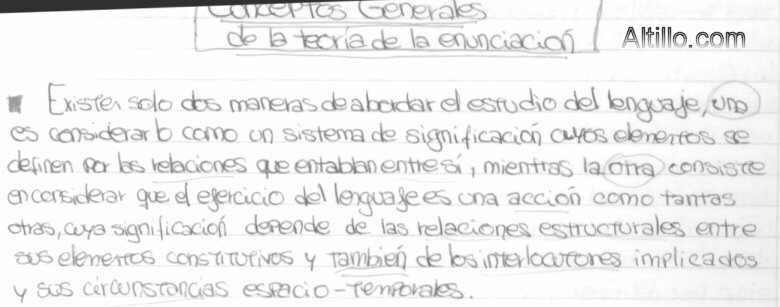 Conceptos Generales
de la teoría de la enunciación
Altillo.com
Existen solo dos maneras de abordar el estudio del lenguaje, una
es considerarlo como un sistema de significación cuyos elementos se
definen por las relaciones que entablan entre sí, mientras la otra consiste
en considerar que el ejercicio del lenguaje es una acción como tantas
otras, cuya significación depende de las relaciones estructurales entre
sus elementos constitutivos y también de los interlocutores implicados
y sus circunstancias espacio-temporales.